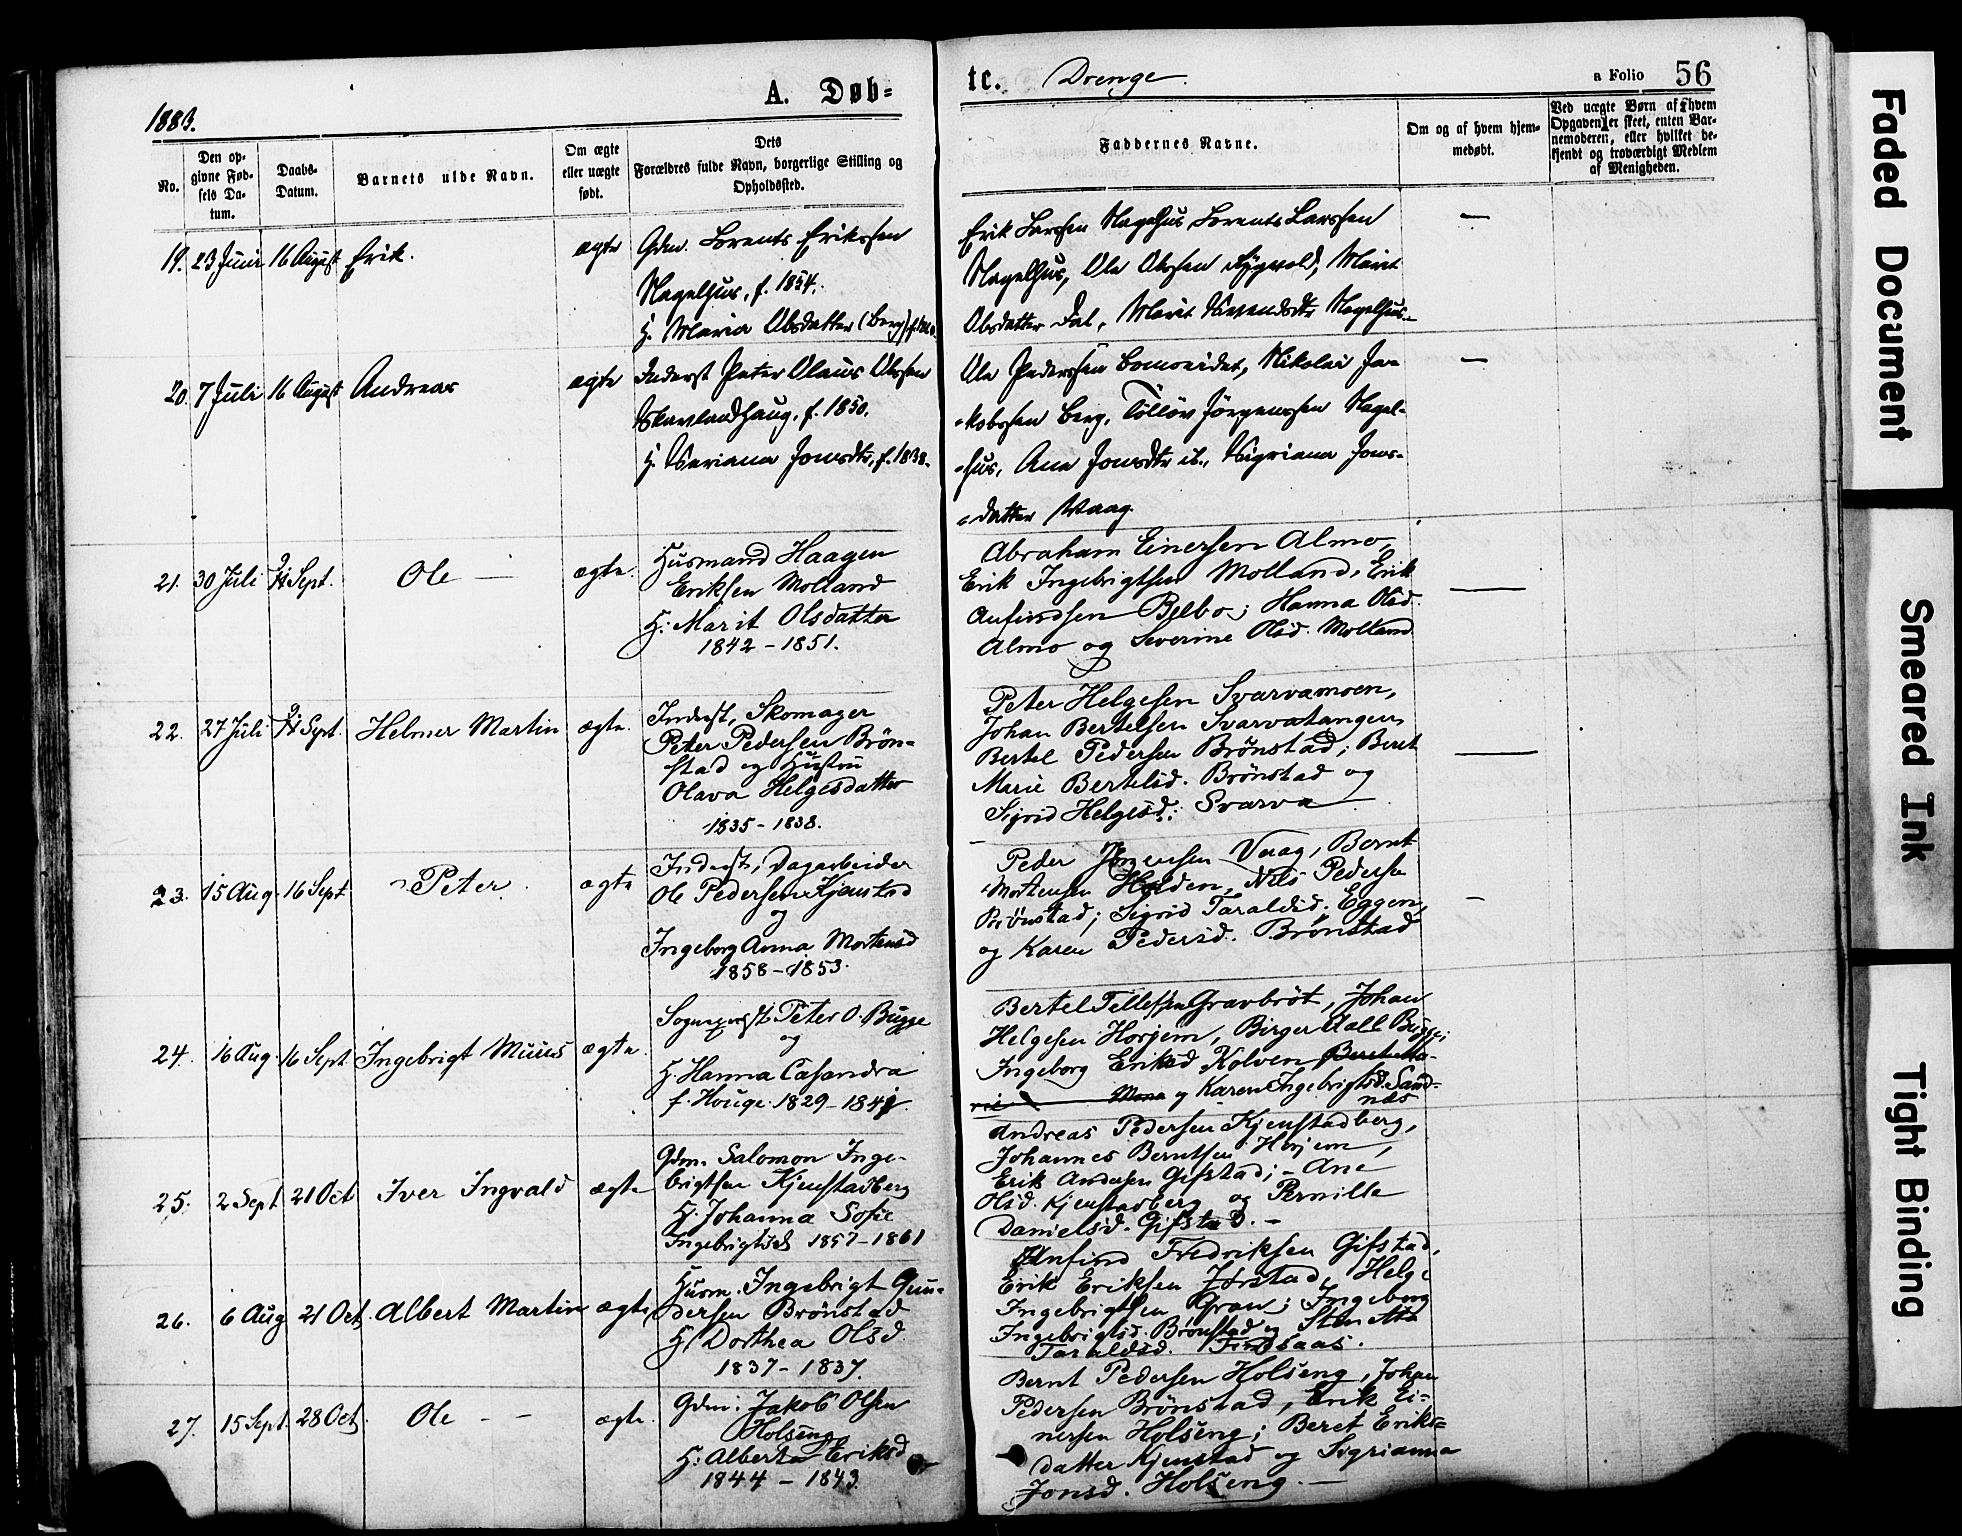 1883.
A. Døb=
tc. Drenge.
a Folio 56
No.
Den op-
givne Fød-
sels Da-
tum.
Daabs-
Datum.
Barnets ulde Navn.
Om ægte
eller uægte
født.
Dets
Forældres fulde Navn, borgerlige Stilling og
Opholdssted.
Faddernes Navne.
Om og af hvem hjem-
medøbt.
Ved uægte Børn af hvem
Opgaven er skeet, enten Bar-
nemoderen, eller hvilket be-
kjendt og troværdigt Medlem
af Menigheden.
19. 23 Juni 16 August Erik. ægte
Gdm. Lorents Erikssen
Hagelhus, f. 1854.
H. Maria Olsdatter (Berg)
Erik Larssen Hagelhus Lorents Larssen
Hagelhus, Ole Olessen Marit
Olsdatter Dal, Marit Hagelhus.
—
20. 7 Juli 16 August Andreas ægte
Inderst Peter Olaus Olessen
Skavlandhaug, f. 1850.
H. Seriana Jonsdtr, f. 1838.
Ole Pederssen Nikolai Ja-
-kobssen Berg, Jörgenssen Hagel-
-hus, Ane Jonsdtr ib., Sigriana Jons-
-datter Waag.
—
21. 30 Juli 9/ Sept. Ole — ægte.
Husmand Haagen
Eriksen Molland
H: Marit Olsdatter
1842 - 1851.
Abraham Einersen Almo,
Erik Ingebrigtsen Molland, Erik
Anfindsen Belbo; Hanna Olsd.
Almo og Severine Olsd. Molland
—
22. 27 Juli 9/ Sept. Helmer Martin ægte.
Inderst, Skomager
Peter Pedersen Brøn=
stad og Hustru
Olava Helgesdatter
1835 - 1838.
Peter Helgesen Svarvamoen,
Johan Bertelsen Svarvatangen,
Bertel Pedersen Brønstad; Beret
Marie Bertelsd. Brønstad og
Sigrid Helgesd: Svarva
—
23. 15 Aug 16 Sept. Peter. ægte
Inderst, Dagarbeider
Ole Pedersen Kjenstad
og
Ingeborg Anna Mortensd
1858 - 1853.
Peder Jörgensen Vaag, Bernt
Mortensen Holden, Nils Pedersen
Brönstad; Sigrid Taraldsd. Eggen,
og Karen Pedersd. Brönstad
—
24. 16 Aug. 16 Sept. Ingebrigt Muus ægte.
Sogneprest Peter O. Bugge
og
H. Hanna Casandra
f. Houge 1829 - 1841.
Bertel Tellefsen Gravbröt, Johan
Helgesen Horjem, Birger Aall Bugge;
Ingeborg Eriksd Kolven Beret Ma-
rie Moen og Karen Ingebrigtsd. Sand-
nes
25. 2 Sept 21 Oct Iver Ingvald ægte
Gdm. Salomon Inge-
brigtsen Kjenstadberg
H. Johanna Sofie
Ingebrigtsd. 1857 - 1861
Andreas Pedersen Kjenstadberg,
Johannes Berntsen Horjem,
Erik Andersen Gifstad; - Ane
Olsd. Kjenstadberg og Pernille
Danielsd. Gifstad. -
26. 6 Aug 21 Oct. Albert Martin ægte
Husm. Ingebrigt Gun-
dersen Brönstad
H. Dorthea Olsd.
1837 - 1837.
Anfind Fredriksen Gifstad,
Erik Eriksen Jörstad, Helge
Ingebrigtsen Gran; Ingeborg
Ingebrigtsd. Brönstad og Stenetta
Taraldsd. Findsaas.
27. 15 Sept. 28 Oct. Ole - - ægte.
Gdm: Jakob Olsen
Holseng
H: Alberta Eriksd.
1844 - 1843.
Bernt Pedersen Holseng, Johan
Pedersen Brönstad, Erik Ei=
nersen Holseng; Beret Eriks=
datter Kjenstad og Sigrianna
Jonsd. Holseng. —
Faded Document
Smeared Ink
Tight Binding